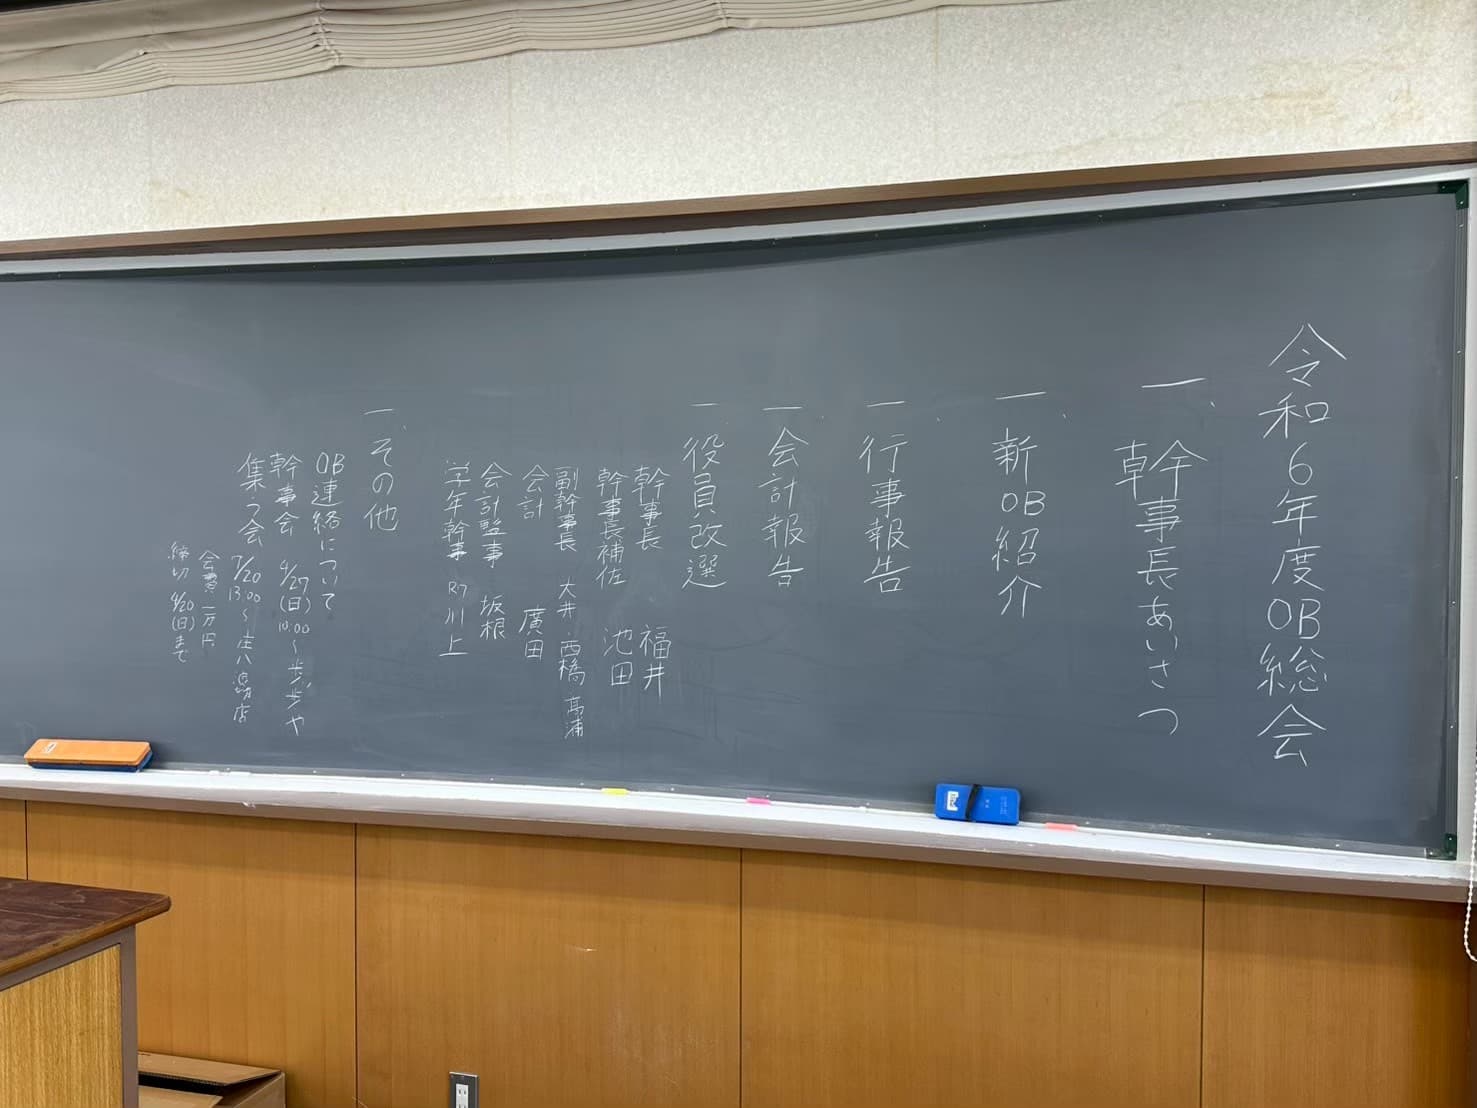 令和6年度OB総会
一、幹事長あいさつ
一、新OB紹介
一、行事報告
一、会計報告
一、役員改選
幹事長 福井
幹事長補佐 池田
副幹事長 大井・西橋 高浦
会計 廣田
会計監事 坂根
学年幹事 R7 川上
一、その他
OB連絡について
幹事会 4/27(日) 10:00〜
集う会 7/20 13:00〜
会費 一万円
締切 4/20(日)まで